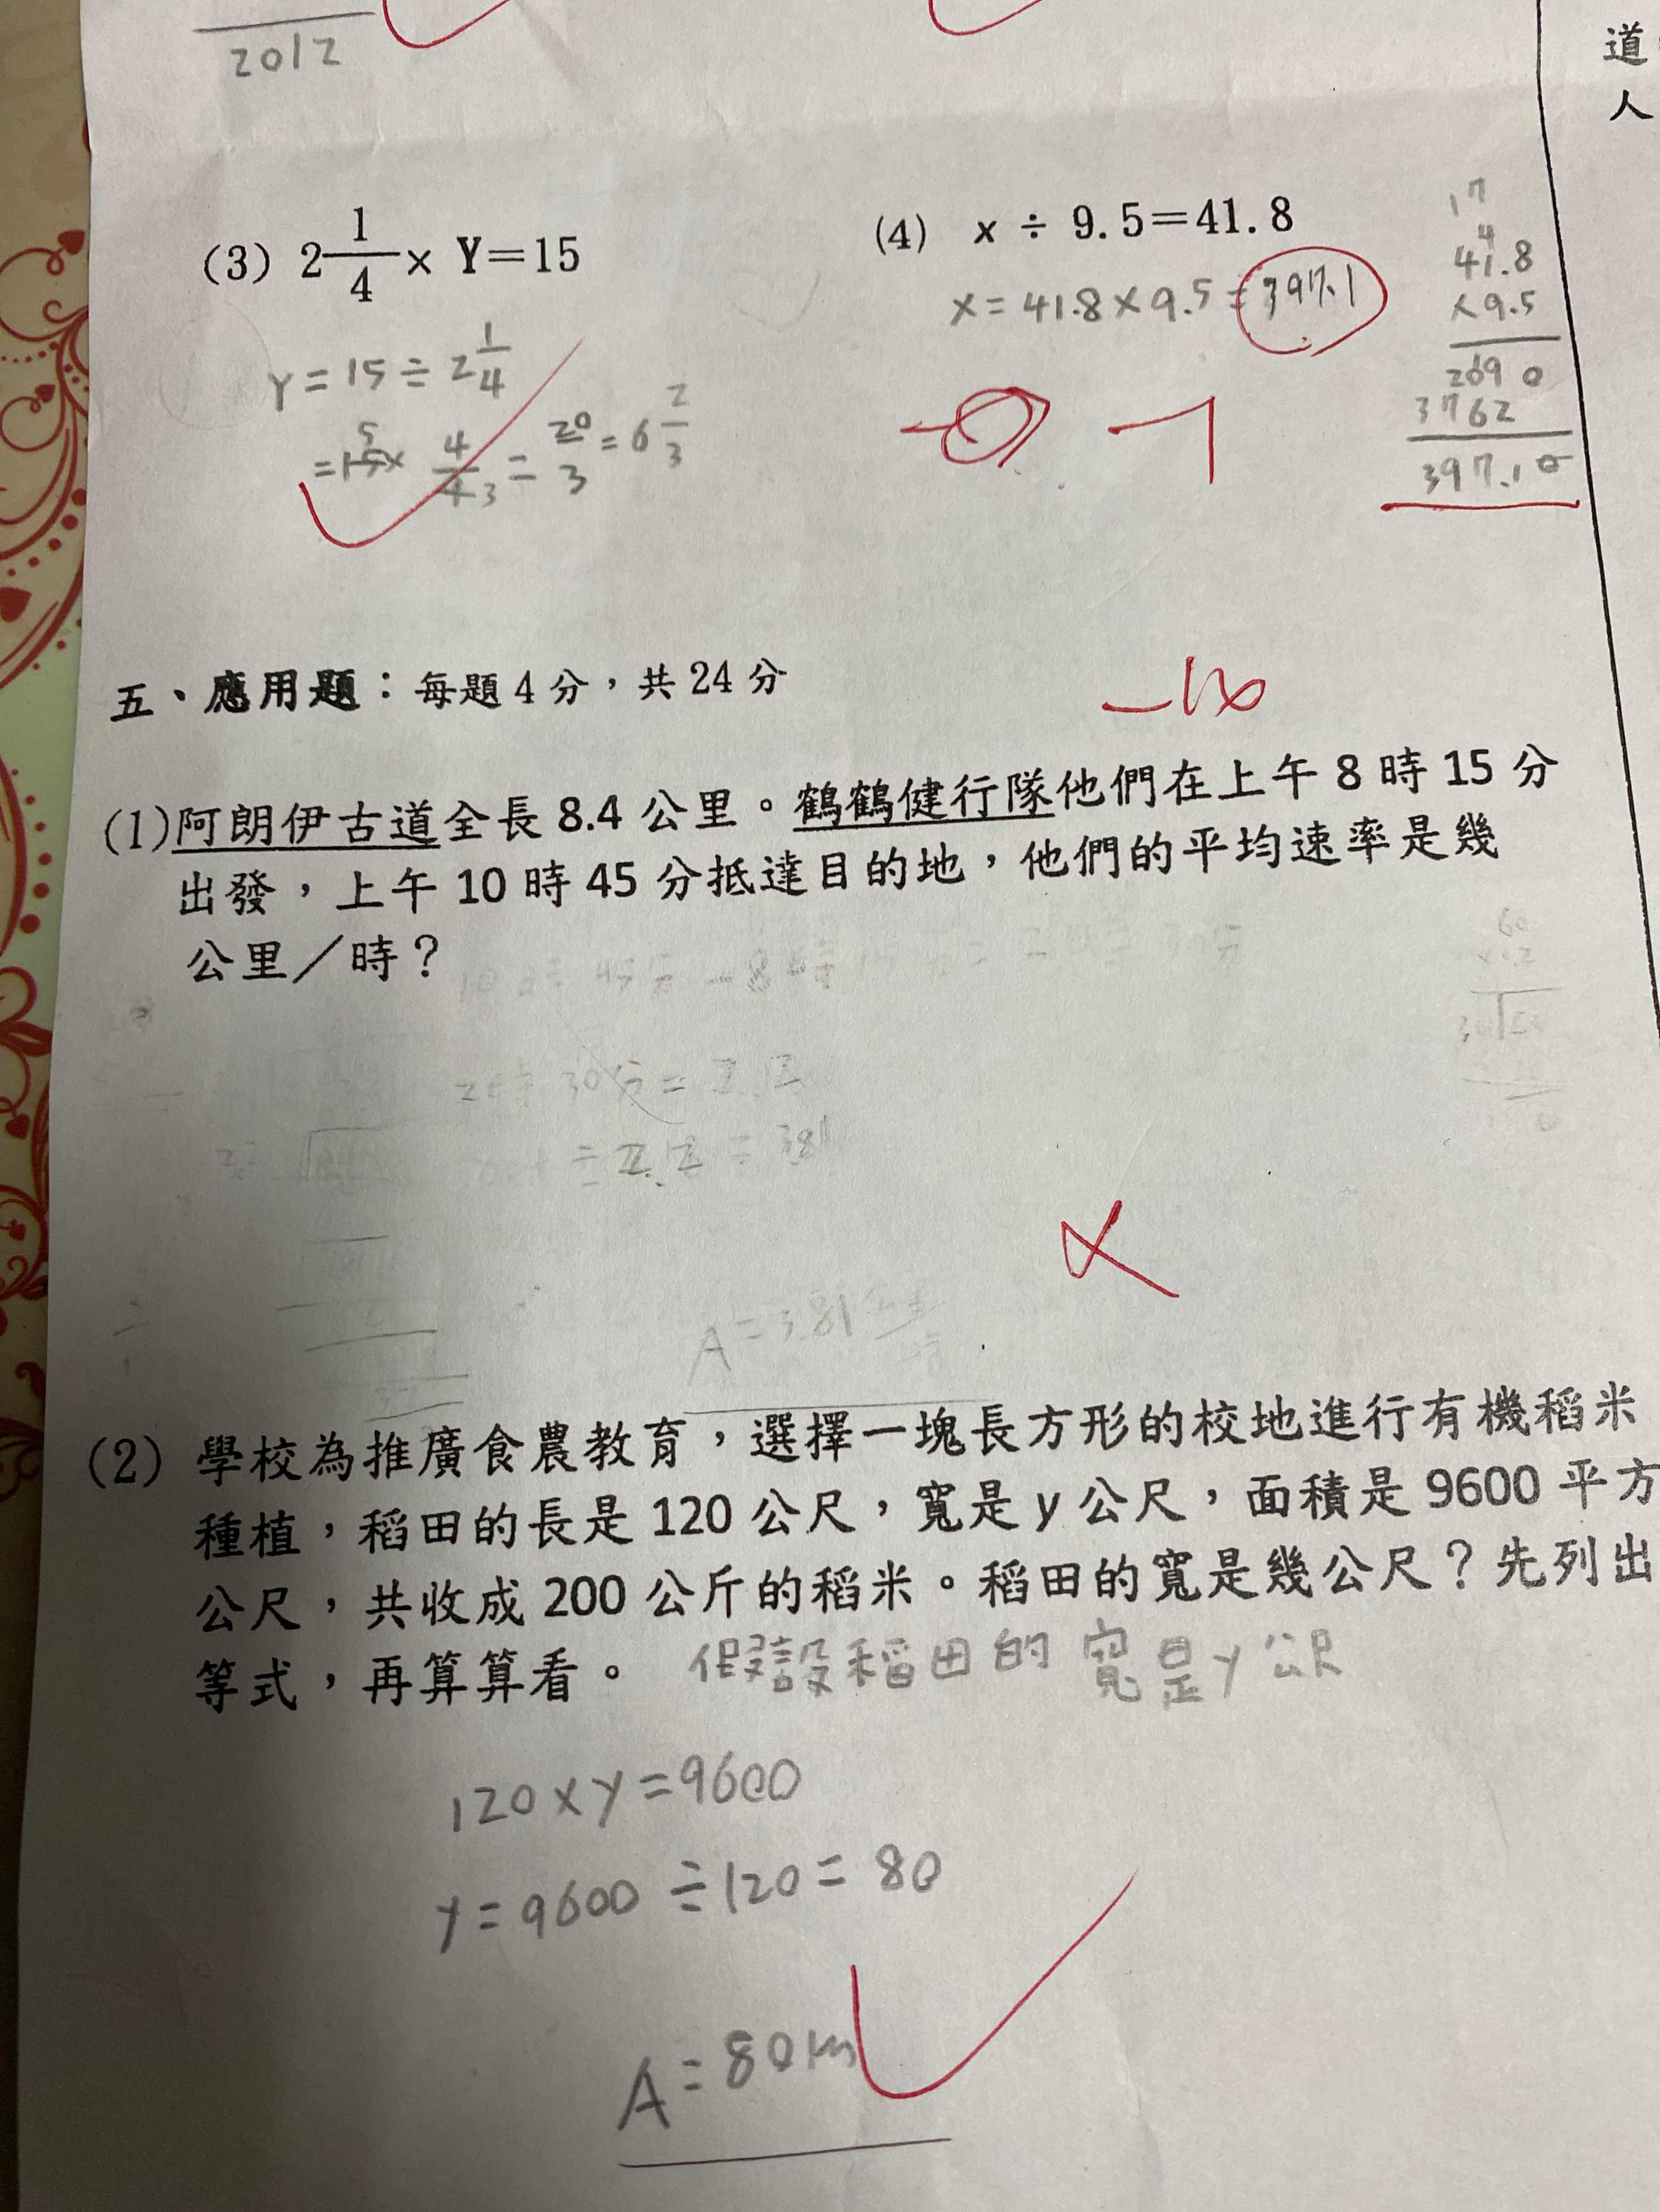 2012
道
人
(3) 2 1/4 × Y=15
Y = 15 ÷ 2 1/4
= 15 × 4/9 3 = 20/3 = 6 2/3
(4) x ÷ 9.5=41.8
x = 41.8 × 9.5 = 397.1
17
4
41.8
×9.5
2090
3762
397.10
-1
五、應用題：每題 4 分，共 24 分
(1)阿朗伊古道全長 8.4 公里。鶴鶴健行隊他們在上午 8 時 15 分
出發，上午 10 時 45 分抵達目的地，他們的平均速率是幾
公里／時？
2時30分=
A=3.81
(2) 學校為推廣食農教育，選擇一塊長方形的校地進行有機稻米
種植，稻田的長是 120 公尺，寬是 y 公尺，面積是 9600 平方
公尺，共收成 200 公斤的稻米。稻田的寬是幾公尺？先列出
等式，再算算看。 假設稻田的寬是y公尺
120×y=9600
y=9600÷120=80
A=80m